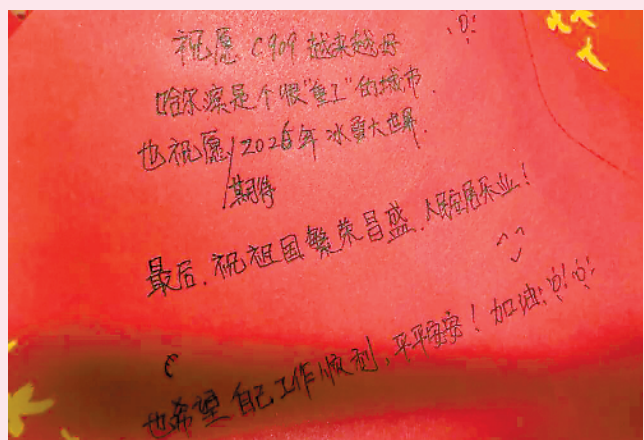 祝愿 C909 越来越好
哈尔滨是个很"重工"的城市.
也祝愿/2026年 冰雪大世界.
期待
最后.祝祖国繁荣昌盛.人民安居乐业!
也希望自己工作顺利,平平安安!加油!